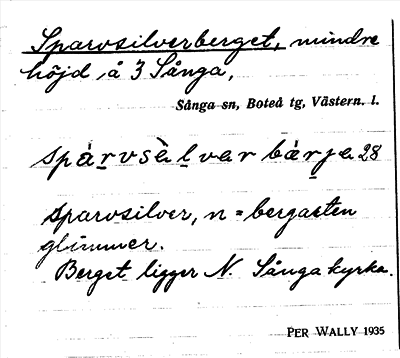 Sparvsilverberget, mindre
höjd å 3 Sånga,
Sånga sn, Boteå tg, Västern. l.
spàrvsèlvar bàrja 28
sparvsilver, n = bergarten
glimmer.
Berget ligger N. Sånga kyrka.
PER WALLY 1935